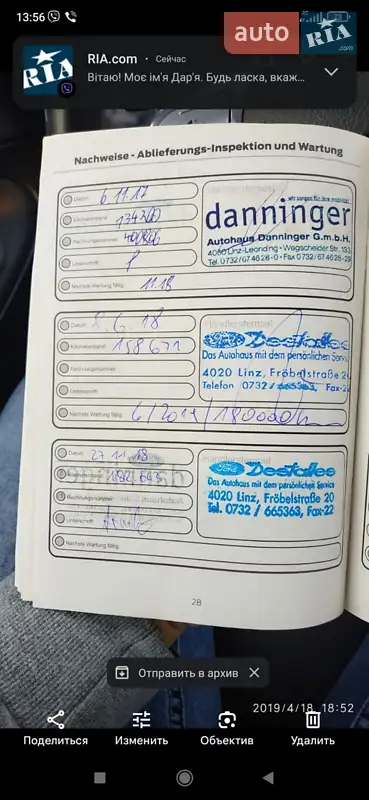 13:56
auto
RIA
.com
RIA.com · Сейчас
Вітаю! Моє ім'я Дар'я. Будь ласка, вкаж...
Nachweise - Ablieferungs-Inspektion und Wartung
Datum 6.11.17
Kilometerstand
Rechnungsnummer
Unterschrift
Nächste Wartung fällig 11.18
danninger
Autohaus Danninger G.m.b.H.
4060 Linz-Leonding · Wegscheider Str. 133
Tel. 0732/67 46 28-0 · Fax 0732/67 46 28-29
Datum 8.6.18
Kilometerstand 158671
Rechnungsnummer
Unterschrift
Nächste Wartung fällig
Händlerstempel
Ford
Das Autohaus mit dem persönlichen Service
4020 Linz, Fröbelstraße 20
Telefon 0732/ 665363, Fax-22
Datum 27.11.18
182643
Rechnungsnummer
Unterschrift
Nächste Wartung fällig
Ford
Das Autohaus mit dem persönlichen Service
4020 Linz, Fröbelstraße 20
Tel. 0732 / 665363, Fax-22
28
Отправить в архив
2019/4/18 18:52
Поделиться
Изменить
Объектив
Удалить